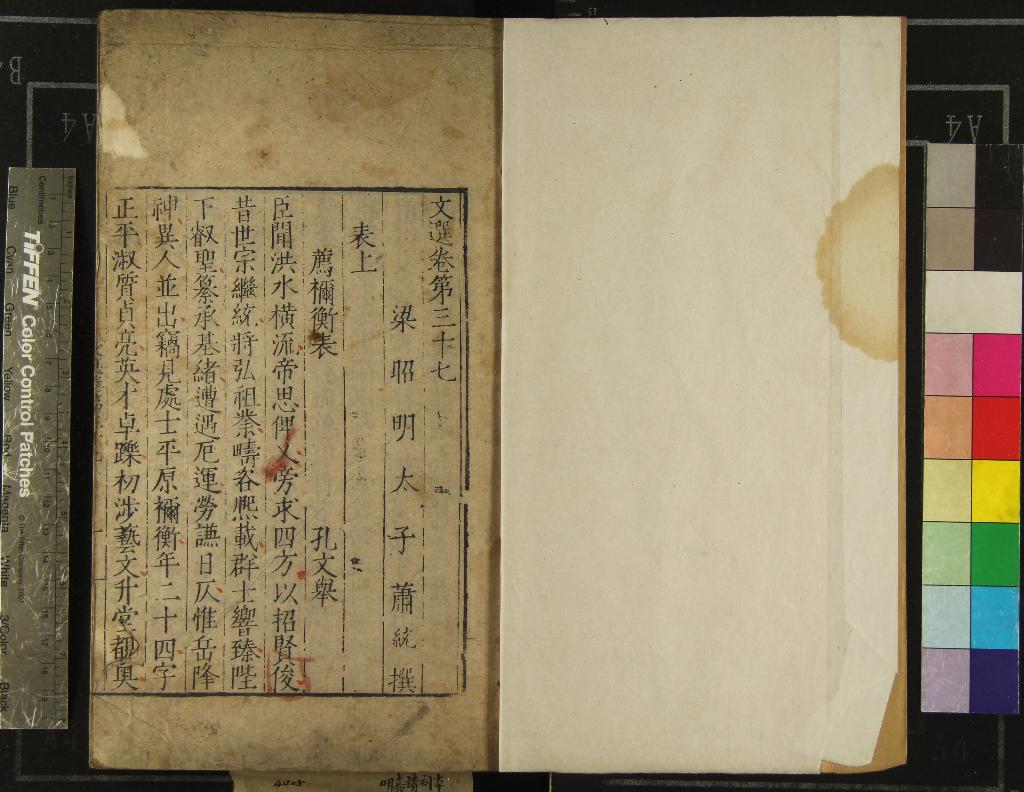 文選卷第三十七
梁昭明太子蕭統撰
表上
薦禰衡表 孔文舉
臣聞洪水橫流帝思俾乂旁求四方以招賢俊
昔世宗繼統將弘祖業疇咨熈載群士響臻陛
下叡聖纂承基緒遭遇厄運勞謙日仄惟岳降
神異人並出竊見處士平原禰衡年二十四字
正平淑質貞亮英才卓躒初涉藝文升堂覩奥
TIFFEN Color Control Patches
Centimetres
Inches
Blue
Cyan
Green
Yellow
Red
Magenta
White
3/Color
Black
A4
A4